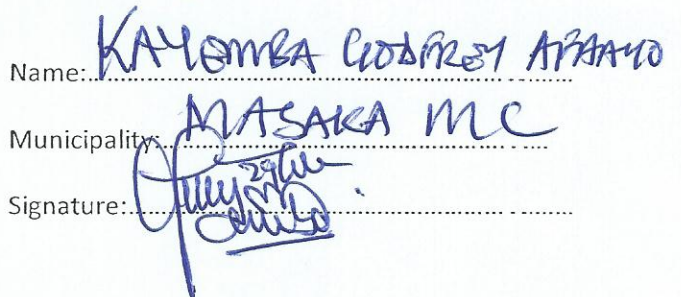 Name: KAYEMBA GODFREY AFAAYO
Municipality: MASAKA MC
Signature: